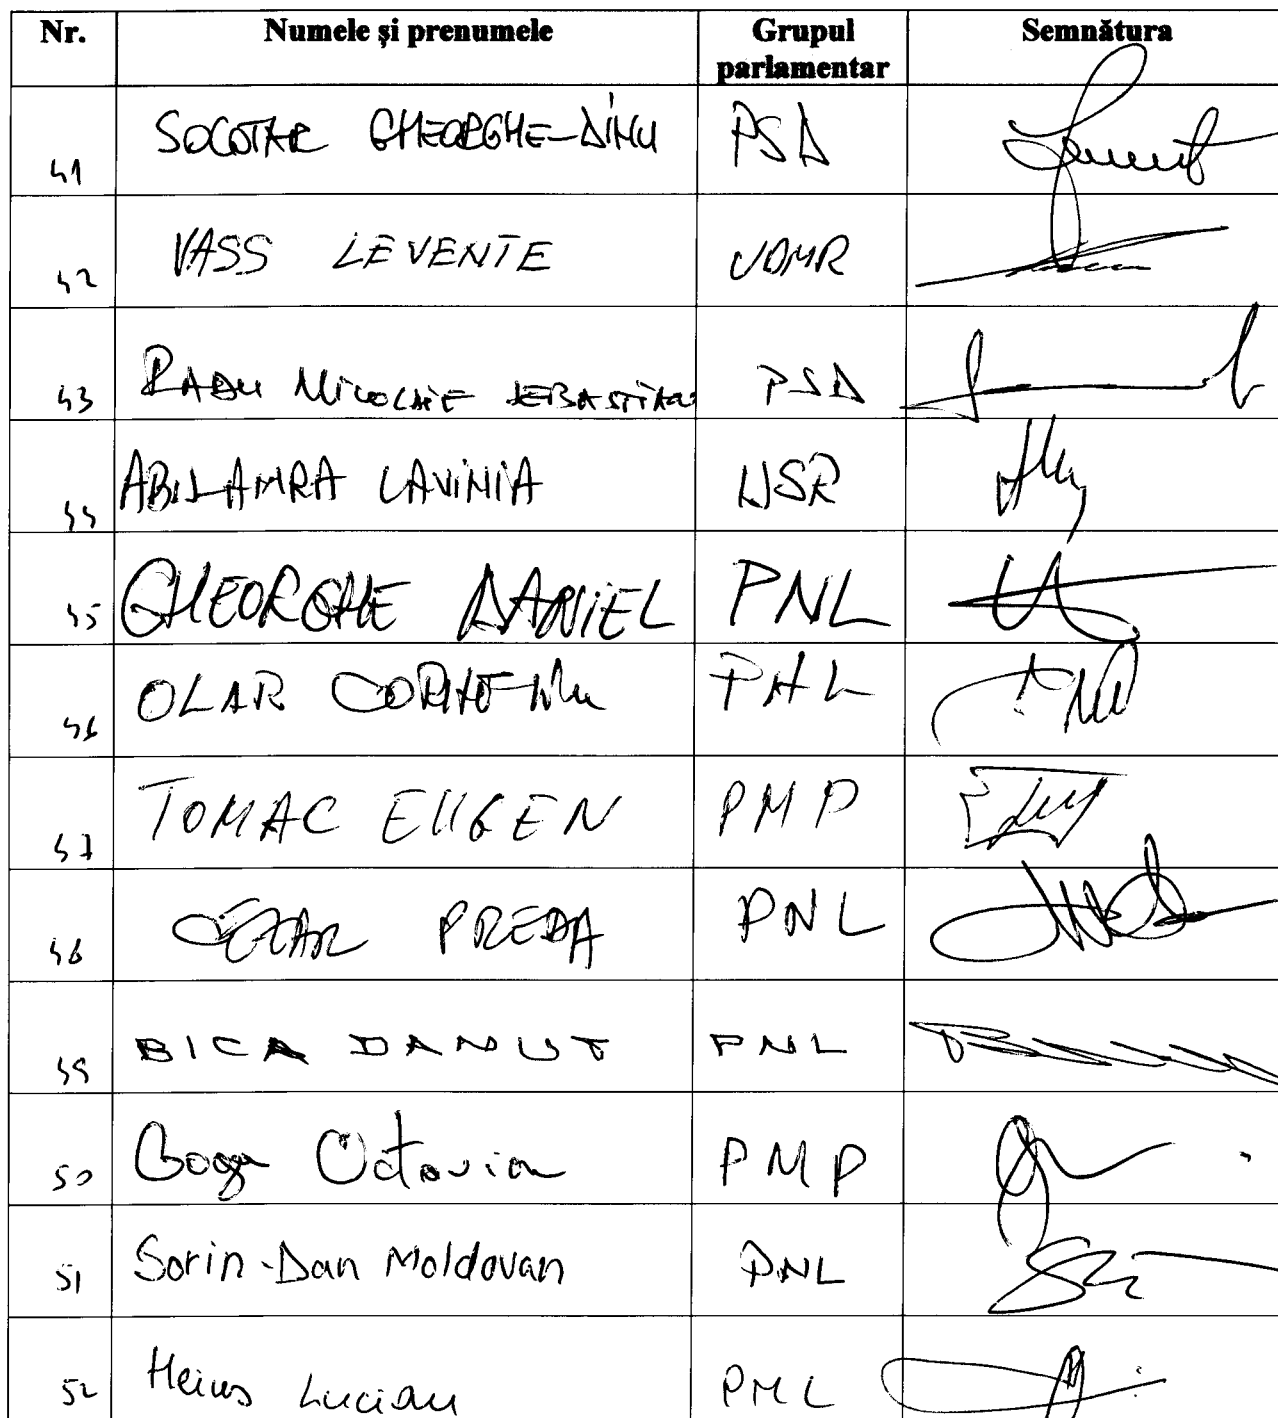 Nr. Numele și prenumele Grupul parlamentar Semnătura
41 SOCOTAR GHEORGHE-DINU PSD
42 VASS LEVENTE UDMR
43 RADU NICOLAIE SEBASTIAN PSD
44 ABU-AMRA LAVINIA USR
45 GHEORGHE DANIEL PNL
46 OLAR CORNELIU PNL
47 TOMAC EUGEN PMP
48 CEZAR PREDA PNL
49 BICA DANUT PNL
50 Goga Octavian PMP
51 Sorin-Dan Moldovan PNL
52 Heius Lucian PNL